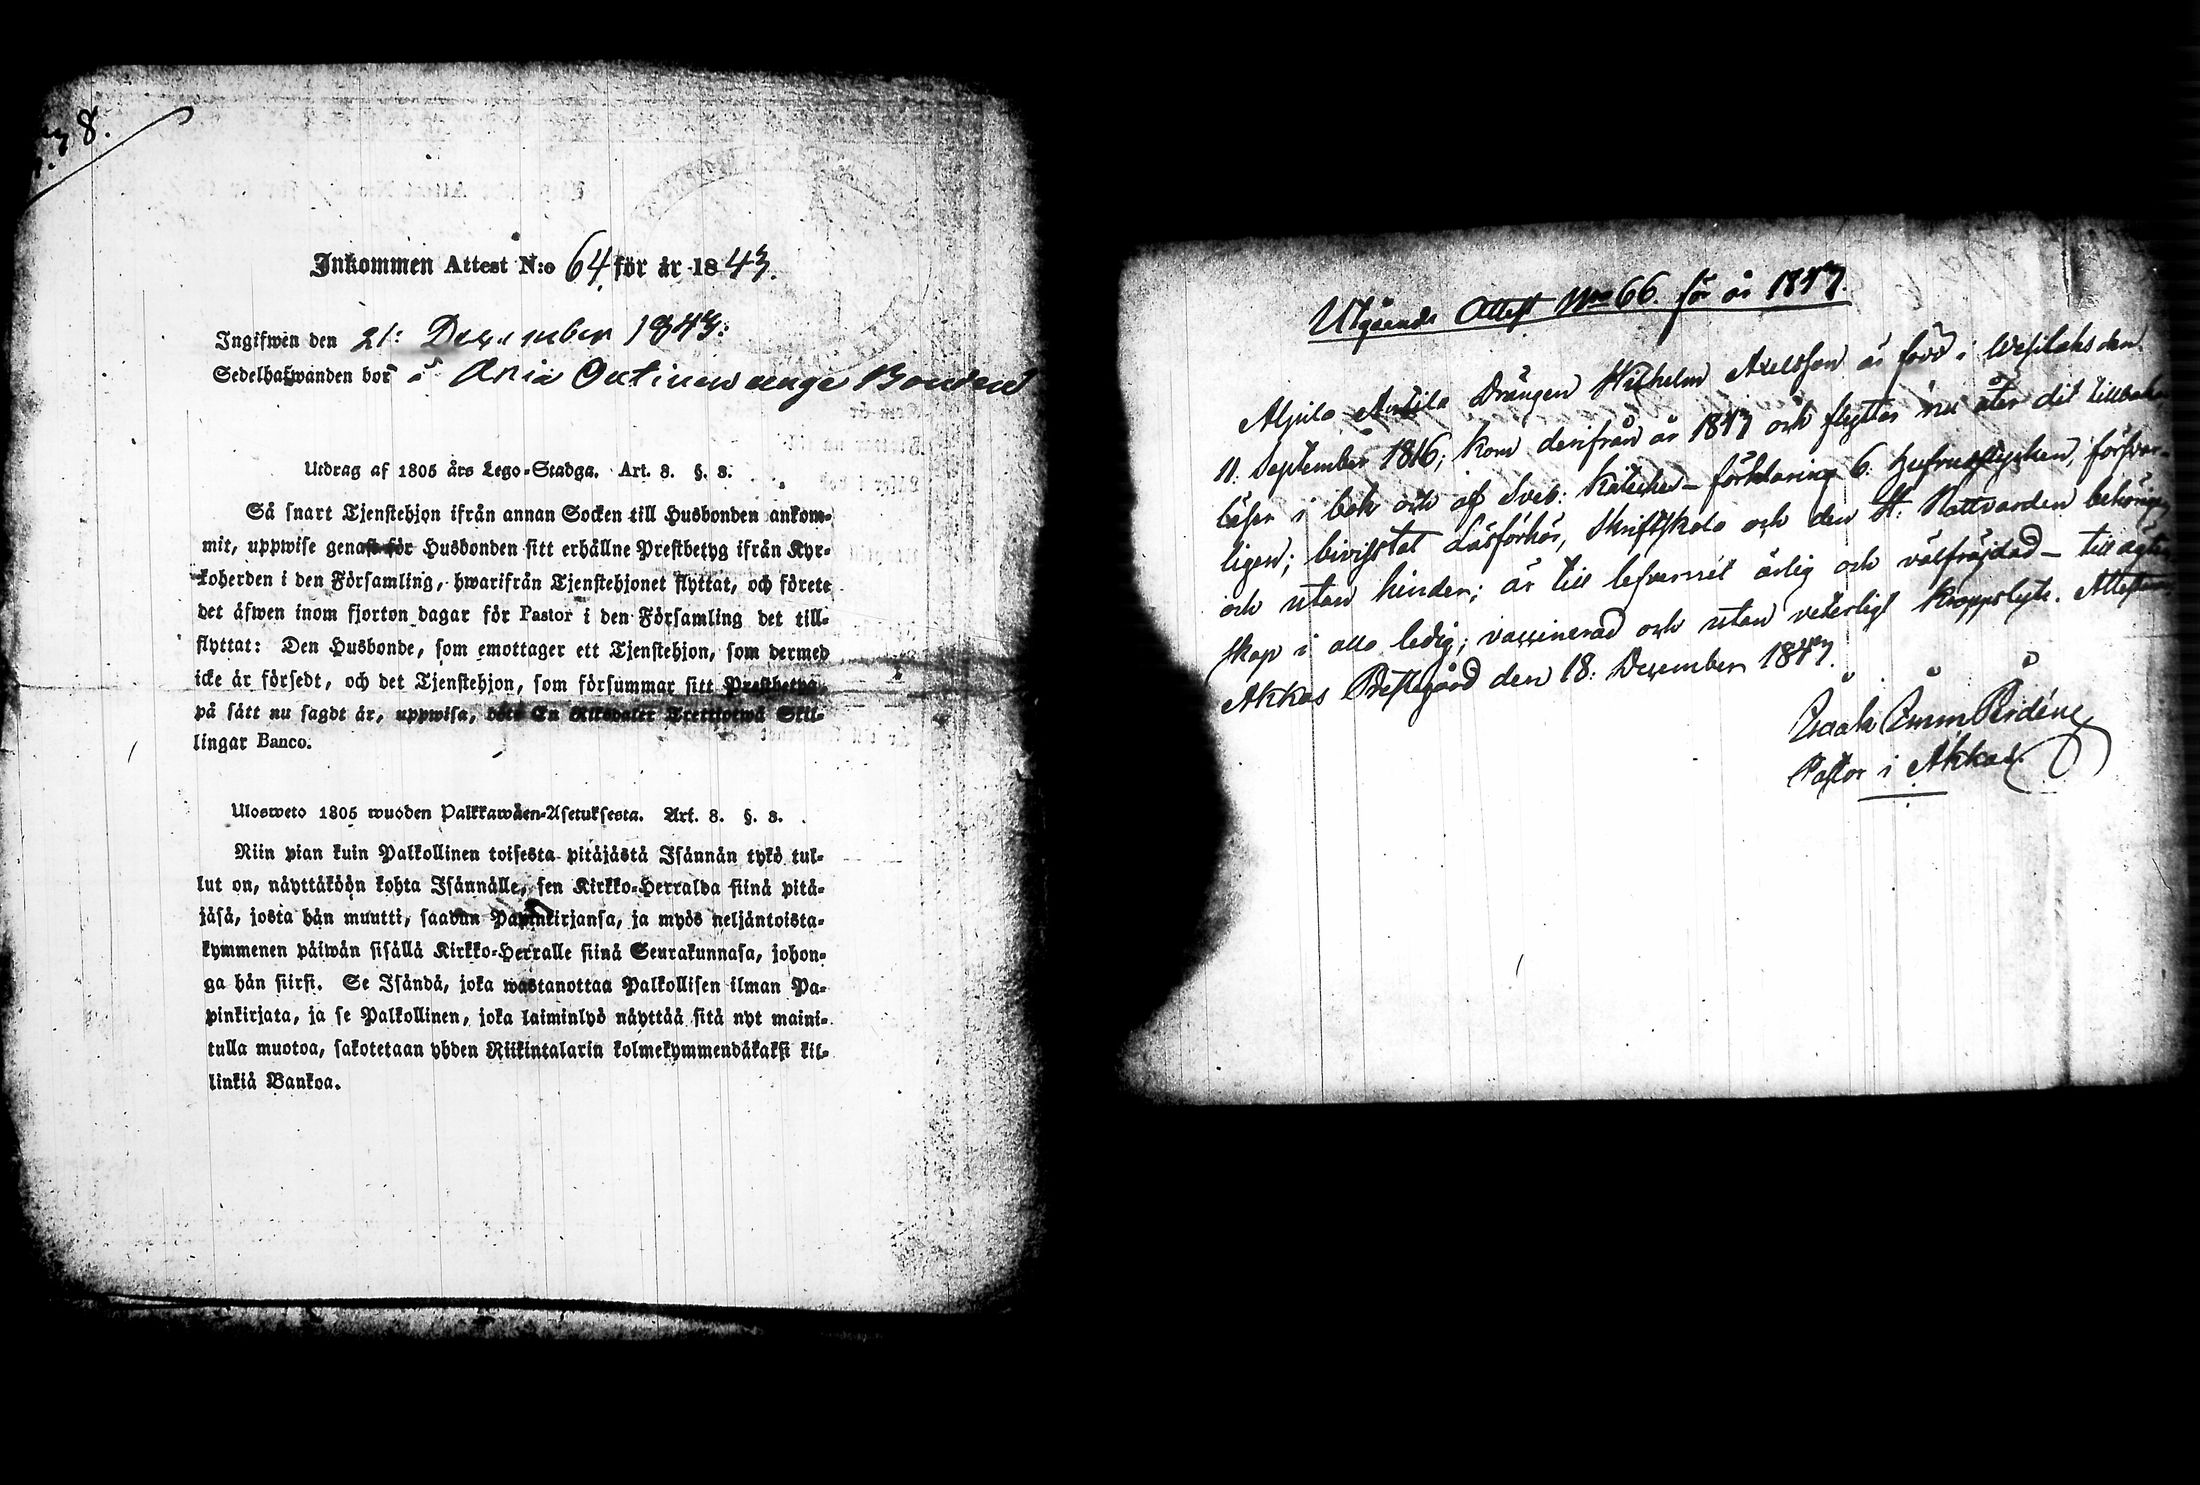 8.
Inkommen Attest N:o 64 för år 1843.
Ingifwen den 21: December 1843:
Sedelhafwanden bor å Bonden
Utdrag af 1805 års Lego-Stadga. Art. 8. §. 3.
Så snart Tjenstehjon ifrån annan Socken till Husbonden ankom-
mit, uppwise genast för Husbonden sitt erhållne Prestbetyg ifrån Kyr-
koherden i den Församling, hwarifrån Tjenstehjonet flyttat, och förete
det äfwen inom fjorton dagar för Pastor i den Församling det till-
flyttat: Den Husbonde, som emottager ett Tjenstehjon, som dermed
icke är försedt, och det Tjenstehjon, som försummar sitt Prestbetyg,
på sätt nu sagdt är, uppwisa, böte En Riksdaler Trettiotwå Skil-
lingar Banco.
Ulosweto 1805 wuoden Palkkawäen-Asetuksesta. Art. 8. §. 3.
Niin pian kuin Palkollinen toisesta pitäjästä Isännän tykö tul-
lut on, näyttäköön kohta Isännälle, sen Kirkko-Herralda siinä pitä-
jäsä, josta hän muutti, saadun Papinkirjansa, ja myös neljäntoista-
kymmenen päiwän sisällä Kirkko-Herralle siinä Seurakunnasa, johon-
ga hän siirsi. Se Isändä, joka wastanottaa Palkollisen ilman Pa-
pinkirjata, ja se Palkollinen, joka laiminlyö näyttää sitä nyt maini-
tulla muotoa, sakotetaan yhden Riikintalarin kolmekymmendäkaksi kil-
linkiä Bankoa.
Utgående Attest No 66. för år 1843.
Aljula Anttila Drängen Wilhelm Axelsson är född i Westlaks den
11. September 1816; kom derifrån år 1843 och flyttar nu åter dit tillbaka
läser i bok och af Sveb: Kateches-förklaring 6. Hufvudstycken, försvar-
ligen; bivistat Läsförhör, Skriftskola och den H. Nattvarden behörigen
och utan hinder; är till lefvernet ärlig och välfräjdad - till ägten-
skap i allo ledig; vaccinerad och utan veterligt kroppslyte. Attesteras
Akkas Prestegård den 18: December 1843.
Pastor i Akkas.